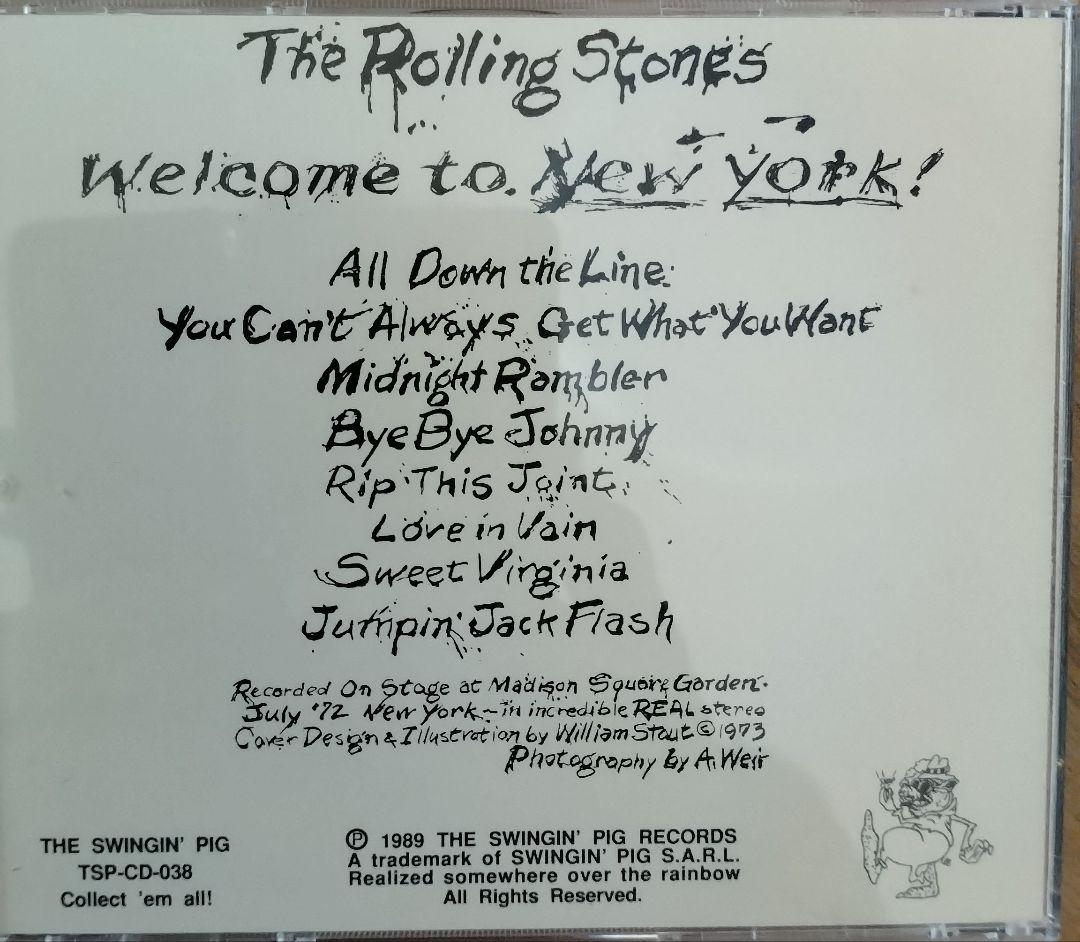 The Rolling Stones
Welcome to New York!
All Down the Line
You Can't Always Get What You Want
Midnight Rambler
Bye Bye Johnny
Rip This Joint
Love in Vain
Sweet Virginia
Jumpin' Jack Flash
Recorded On Stage at Madison Square Garden.
July '72 New York - in incredible REAL stereo
Cover Design & Illustration by William Stout © 1973
Photography by A. Weir
THE SWINGIN' PIG
TSP-CD-038
Collect 'em all!
℗ 1989 THE SWINGIN' PIG RECORDS
A trademark of SWINGIN' PIG S.A.R.L.
Realized somewhere over the rainbow
All Rights Reserved.